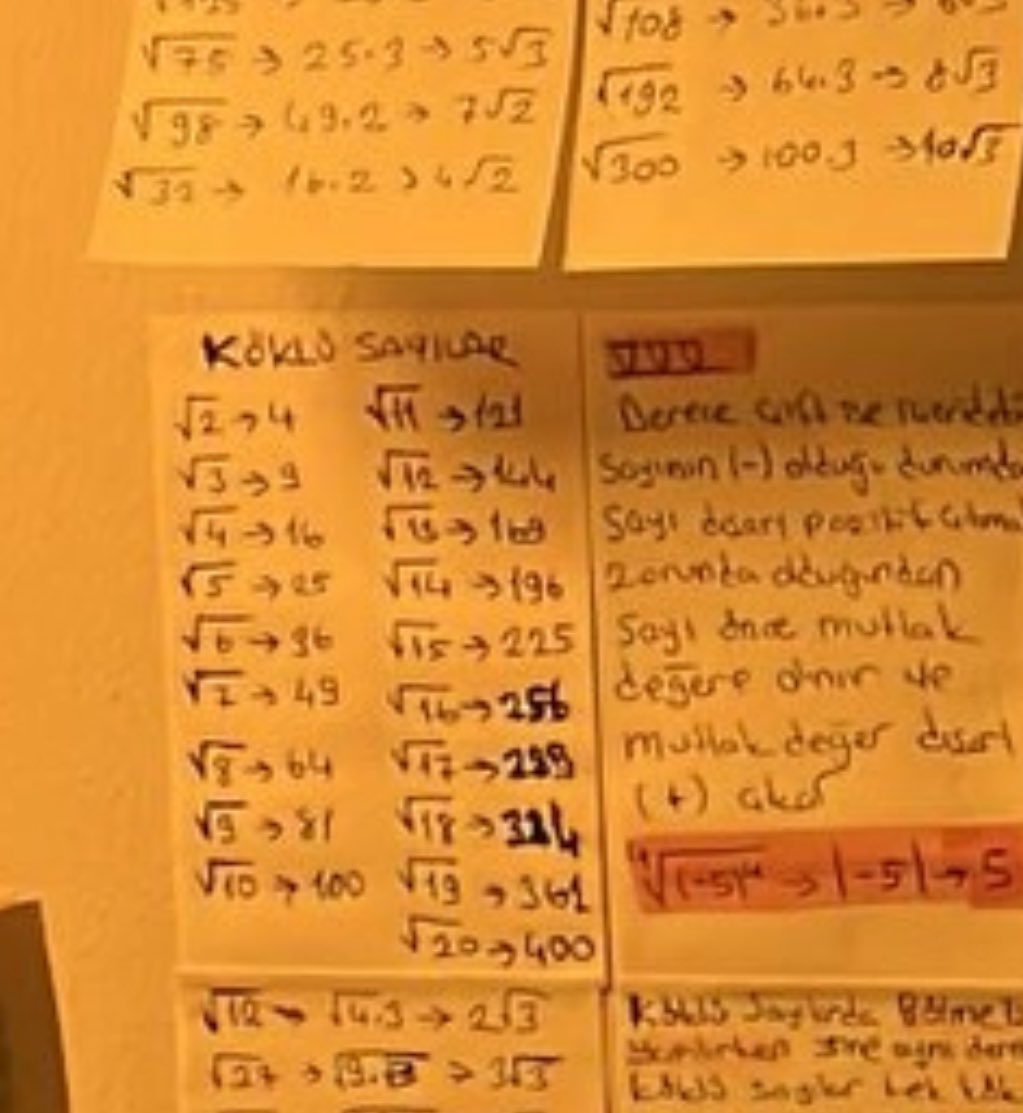 √75 → 25.3 → 5√3
√98 → 49.2 → 7√2
√32 → 16.2 → 4√2
√108 → 36.3 →
√192 → 64.3 → 8√3
√300 → 100.3 → 10√3
KÖKLÜ SAYILAR
√2 → 4
√3 → 9
√4 → 16
√5 → 25
√6 → 36
√7 → 49
√8 → 64
√9 → 81
√10 → 100
√11 → 121
√12 → 144
√13 → 169
√14 → 196
√15 → 225
√16 → 256
√17 → 289
√18 → 324
√19 → 361
√20 → 400
Derece çift ise
Sayının (-) olduğu durumda
Sayı dışarı pozitif
zorunda olduğundan
Sayı önce mutlak
değere alınır ve
mutlak değer dışarı
(+)
⁴√(-5)⁴ → |-5| → 5
√12 → √4.3 → 2√3
√27 → √9.3 → 3√3
Köklü Sayılarda
köklü sayılar tek